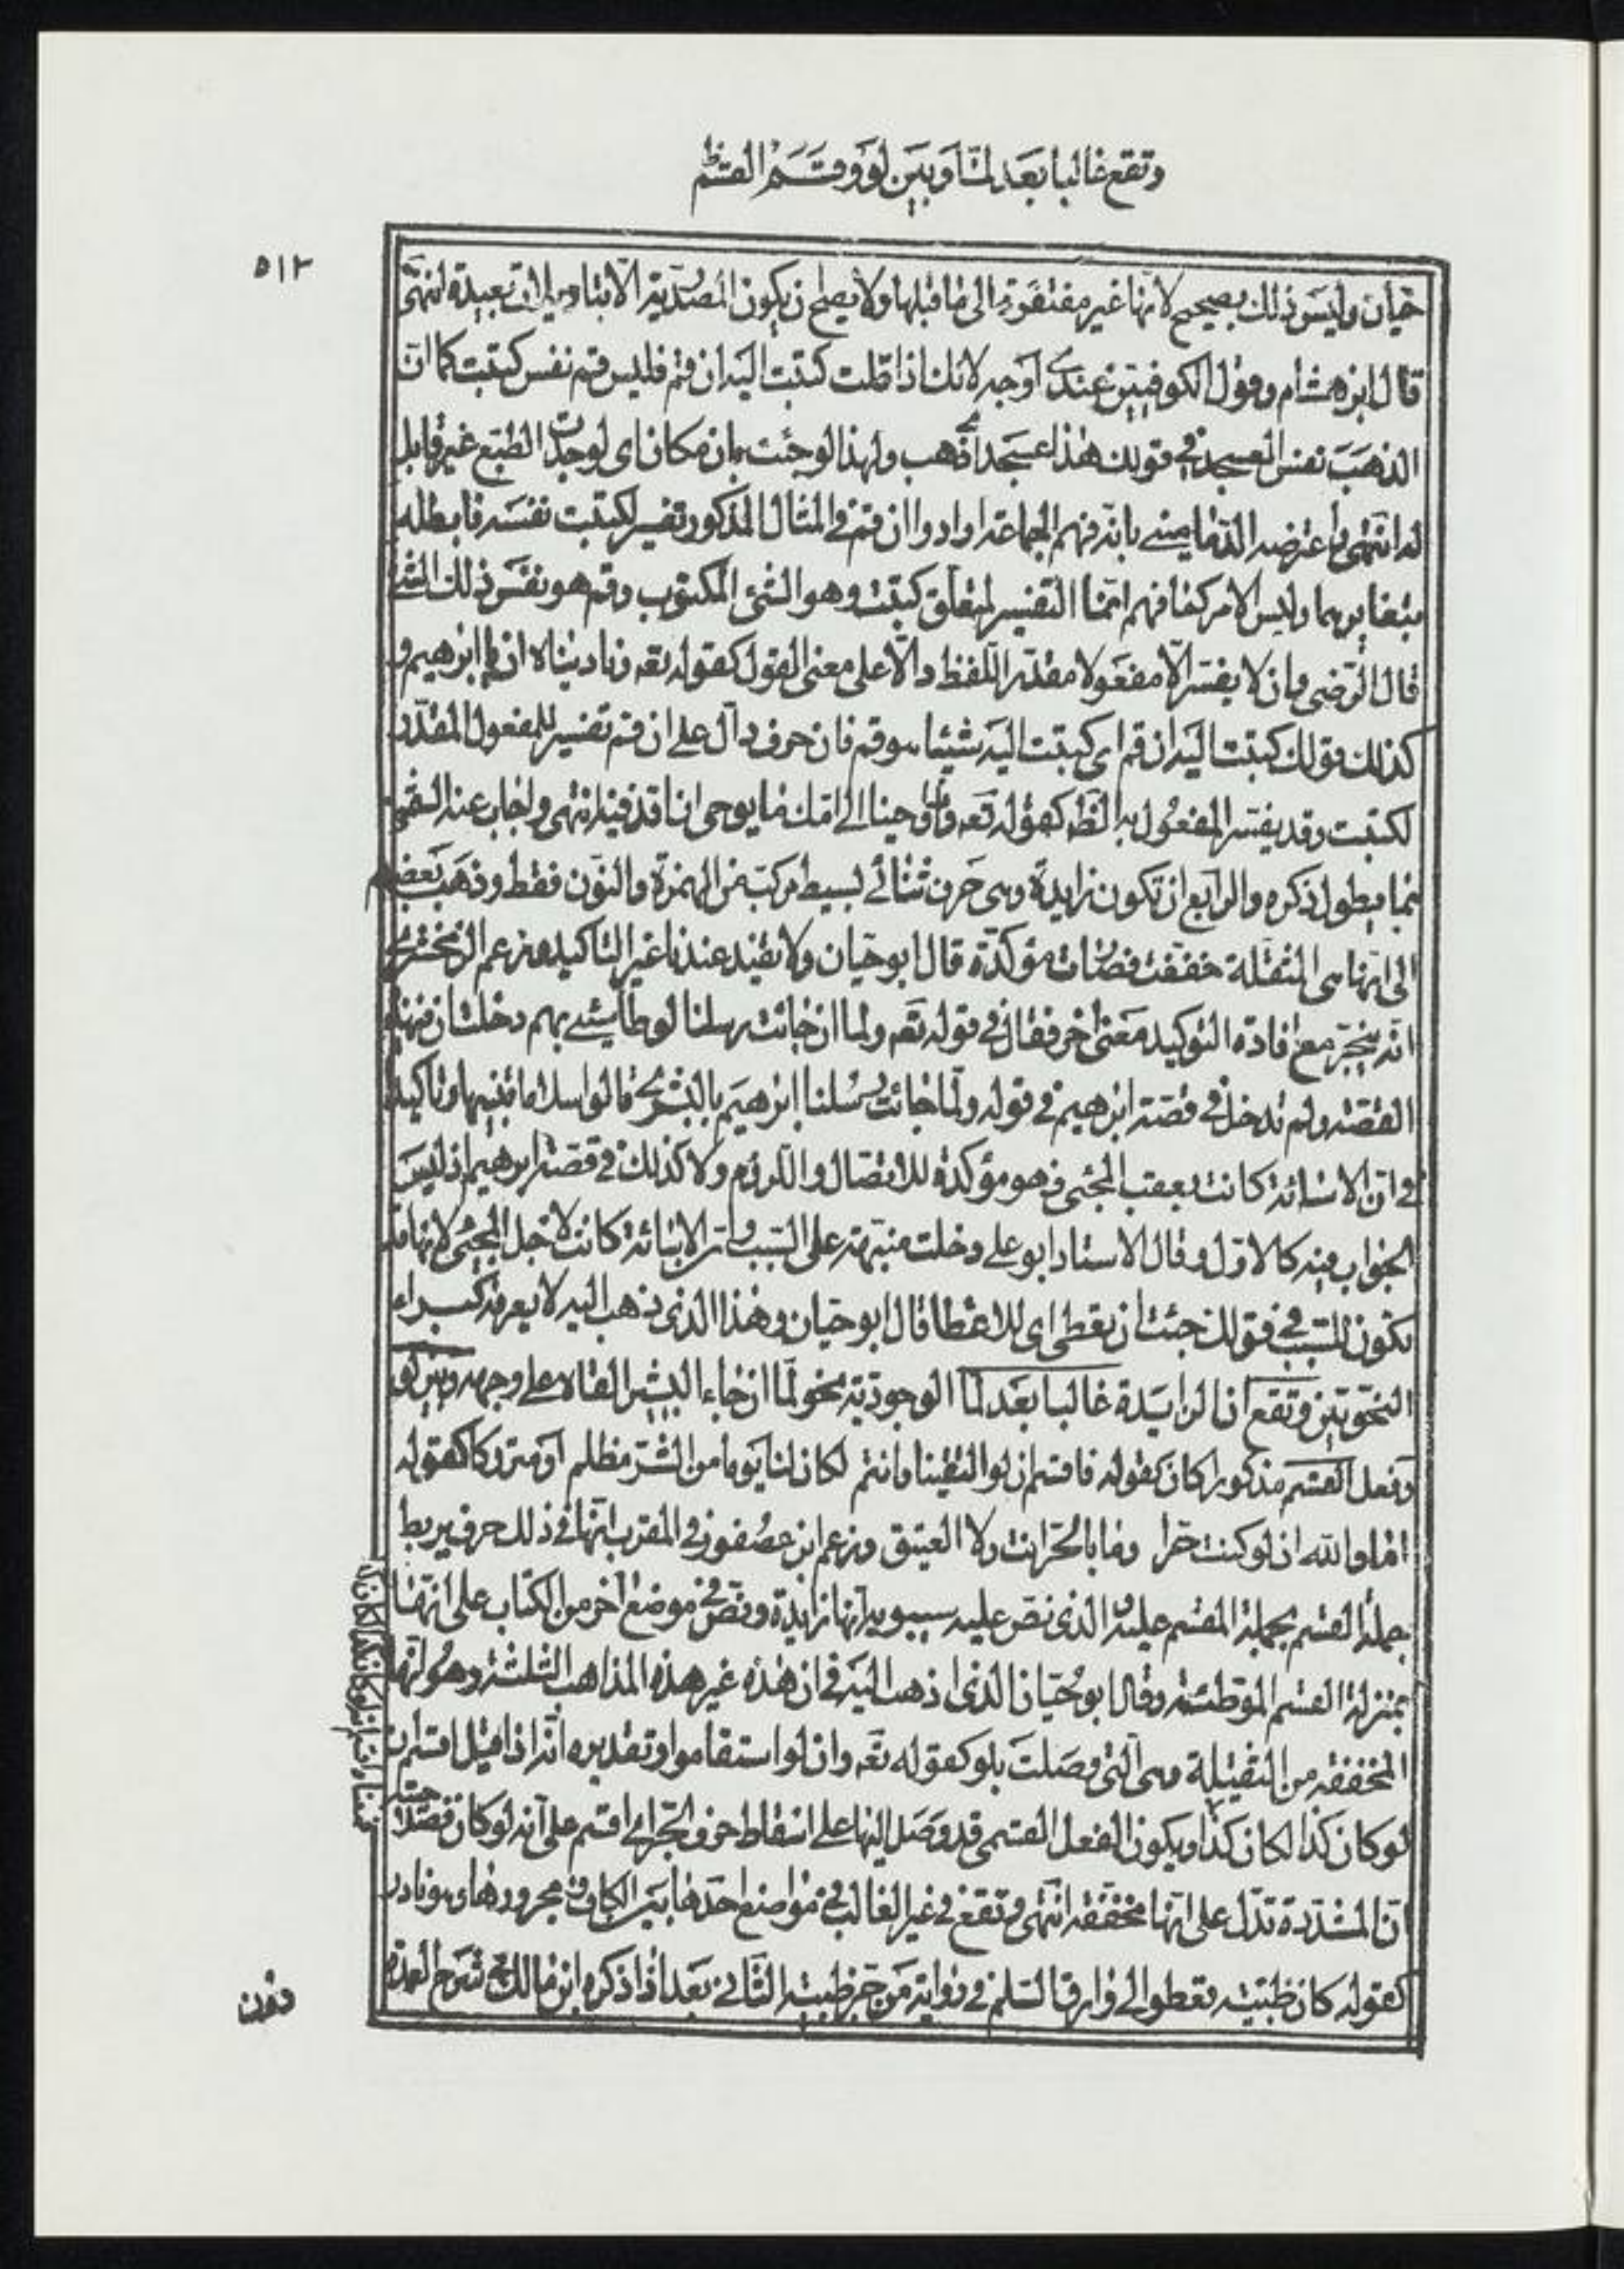 وتقع غالبا بعد لما وبين لو وقسم القسم
٥١٢
حيان وليس ذلك بصحيح لانها غير مفتقرة الى ما قبلها ولا يصلح ان يكون المصدرية الا بتاويلات بعيدة انتهى
قال ابن هشام وقول الكوفيين عندى اوجه لانك اذا قلت كتبت اليه ان قم فليس قم نفس كتبت كما ان
الذهب نفس العسجد فى قولك هذا عسجد اى ذهب ولهذا لو جئت باى مكان ان لوجدت الطبع غير قابل
له انتهى واعترضه الدمامينى بانه فهم الجماعة ارادوا ان قم فى المثال المذكور تفسير لكتبت نفسه فابطله
بتغايرهما وليس الامر كما فهم انما التفسير لمتعلق كتبت وهو الشئ المكتوب وقم هو نفس ذلك الشئ
قال الرضى وان لا يفسر الا مفعولا مقدر اللفظ دالا على معنى القول كقوله تعه وناديناه ان يا ابرهيم و
كذلك قولك كتبت اليه ان قم اى كتبت اليه شيئا هو قم فان حرف دال على ان قم تفسير للمفعول المقدر
لكتبت وقد يفسر المفعول به الظه كقوله تعه واوحينا الى امك ما يوحى ان اقذفيه انتهى واجاب عنه الشمنى
بما يطول ذكره والرابع ان تكون زايدة وهى حرف ثنائى بسيط مركب من الهمزة والنون فقط وذهب بعضهم
الى انها هى المثقلة خففت فصارت مؤكدة قال ابو حيان ولا تفيد عندنا غير التاكيد وزعم الزمخشرى
انه ينجر مع افادة التوكيد معنى اخر فقال فى قوله تعه ولما ان جائت رسلنا لوطا سىء بهم دخلت ان فى هذه
القصة ولم تدخل فى قصة ابرهيم فى قوله ولما جائت رسلنا ابرهيم بالبشرى قالوا سلاما تنبيها وتاكيدا
فى ان الاسائة كانت بعقب المجئى فهو مؤكدة للاتصال واللزوم ولا كذلك فى قصة ابرهيم اذ ليس
الجواب فيه كالاول وقال الاستاد ابو على دخلت منبهة على السبب وان الاسائة كانت لاجل المجئى لانها قد
تكون للسبب فى قولك جئت ان تعطى اى للاعطا قال ابو حيان وهذا الذى ذهب اليه لا يعرفه كبراء
النحويين وتقع ان الزايدة غالبا بعد لما الوجودية نحو لما ان جاء البشير القاه على وجهه وبين لو
وفعل القسم مذكورا كان كقوله فاقسم ان لو التقينا وانتم لكان لنا يوما من الشر مظلم او متروكا كقوله
اما والله ان لو كنت حرا وما بالحر انت ولا العتيق وزعم ابن عصفور فى المقرب انها فى ذلك حرف يربط
جملة القسم بجملة المقسم عليه والذى نص عليه سيبويه انها زايدة ونص فى موضع آخر من الكتاب على انها
بمنزلة القسم الموطئة وقال ابو حيان الذى اذهب اليه فى ان هذه غير هذه المذاهب الثلثة وهو انها
المخففة من الثقيلة وهى التى وصلت بلو كقوله تعه وان لو استقاموا وتقديره انه اذا قيل اقسم ان
لو كان كذا لكان كذا ويكون الفعل القسمى قد وصل اليها على اسقاط حرف الجر اى اقسم على انه لو كان فصلاحية
ان المشددة تدل على انها مخففة انتهى وتقع فى غير الغالب فى مواضع احدها بين الكاف ومجرورها وهو نادر
كقوله كان ظبية تعطوا الى وارق السلم فى رواية من جر ظبية الثانى بعد اذا ذكره ابن مالك فى شرح العمدة